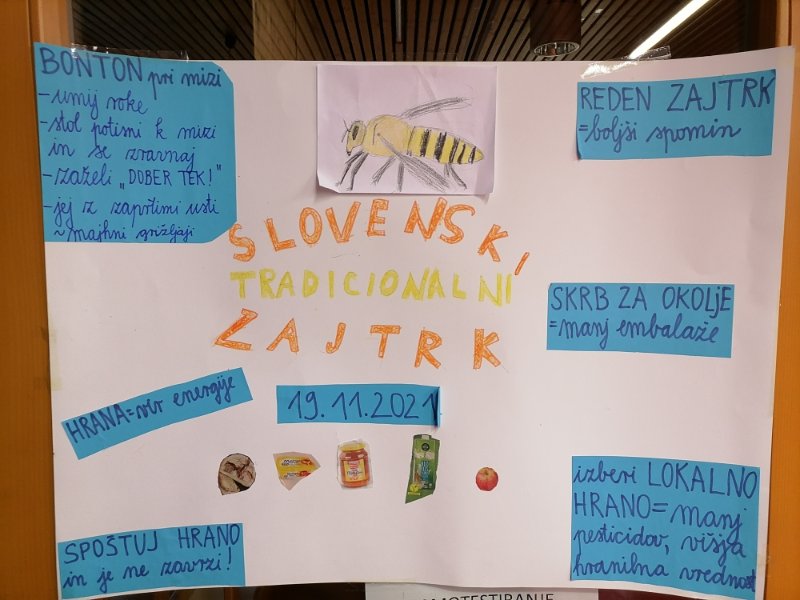 BONTON pri mizi
- umij roke
- stol potisni k mizi
in se zravnaj
- zaželi „DOBER TEK!"
- jej z zaprtimi usti
~ majhni grižljaji
REDEN ZAJTRK
= boljši spomin
SLOVENSKI
TRADICIONALNI
ZAJTRK
SKRB ZA OKOLJE
= manj embalaže
HRANA = vir energije
19.11.2021
SPOŠTUJ HRANO
in je ne zavrzi!
izberi LOKALNO
HRANO = manj
pesticidov, višja
hranilna vrednost